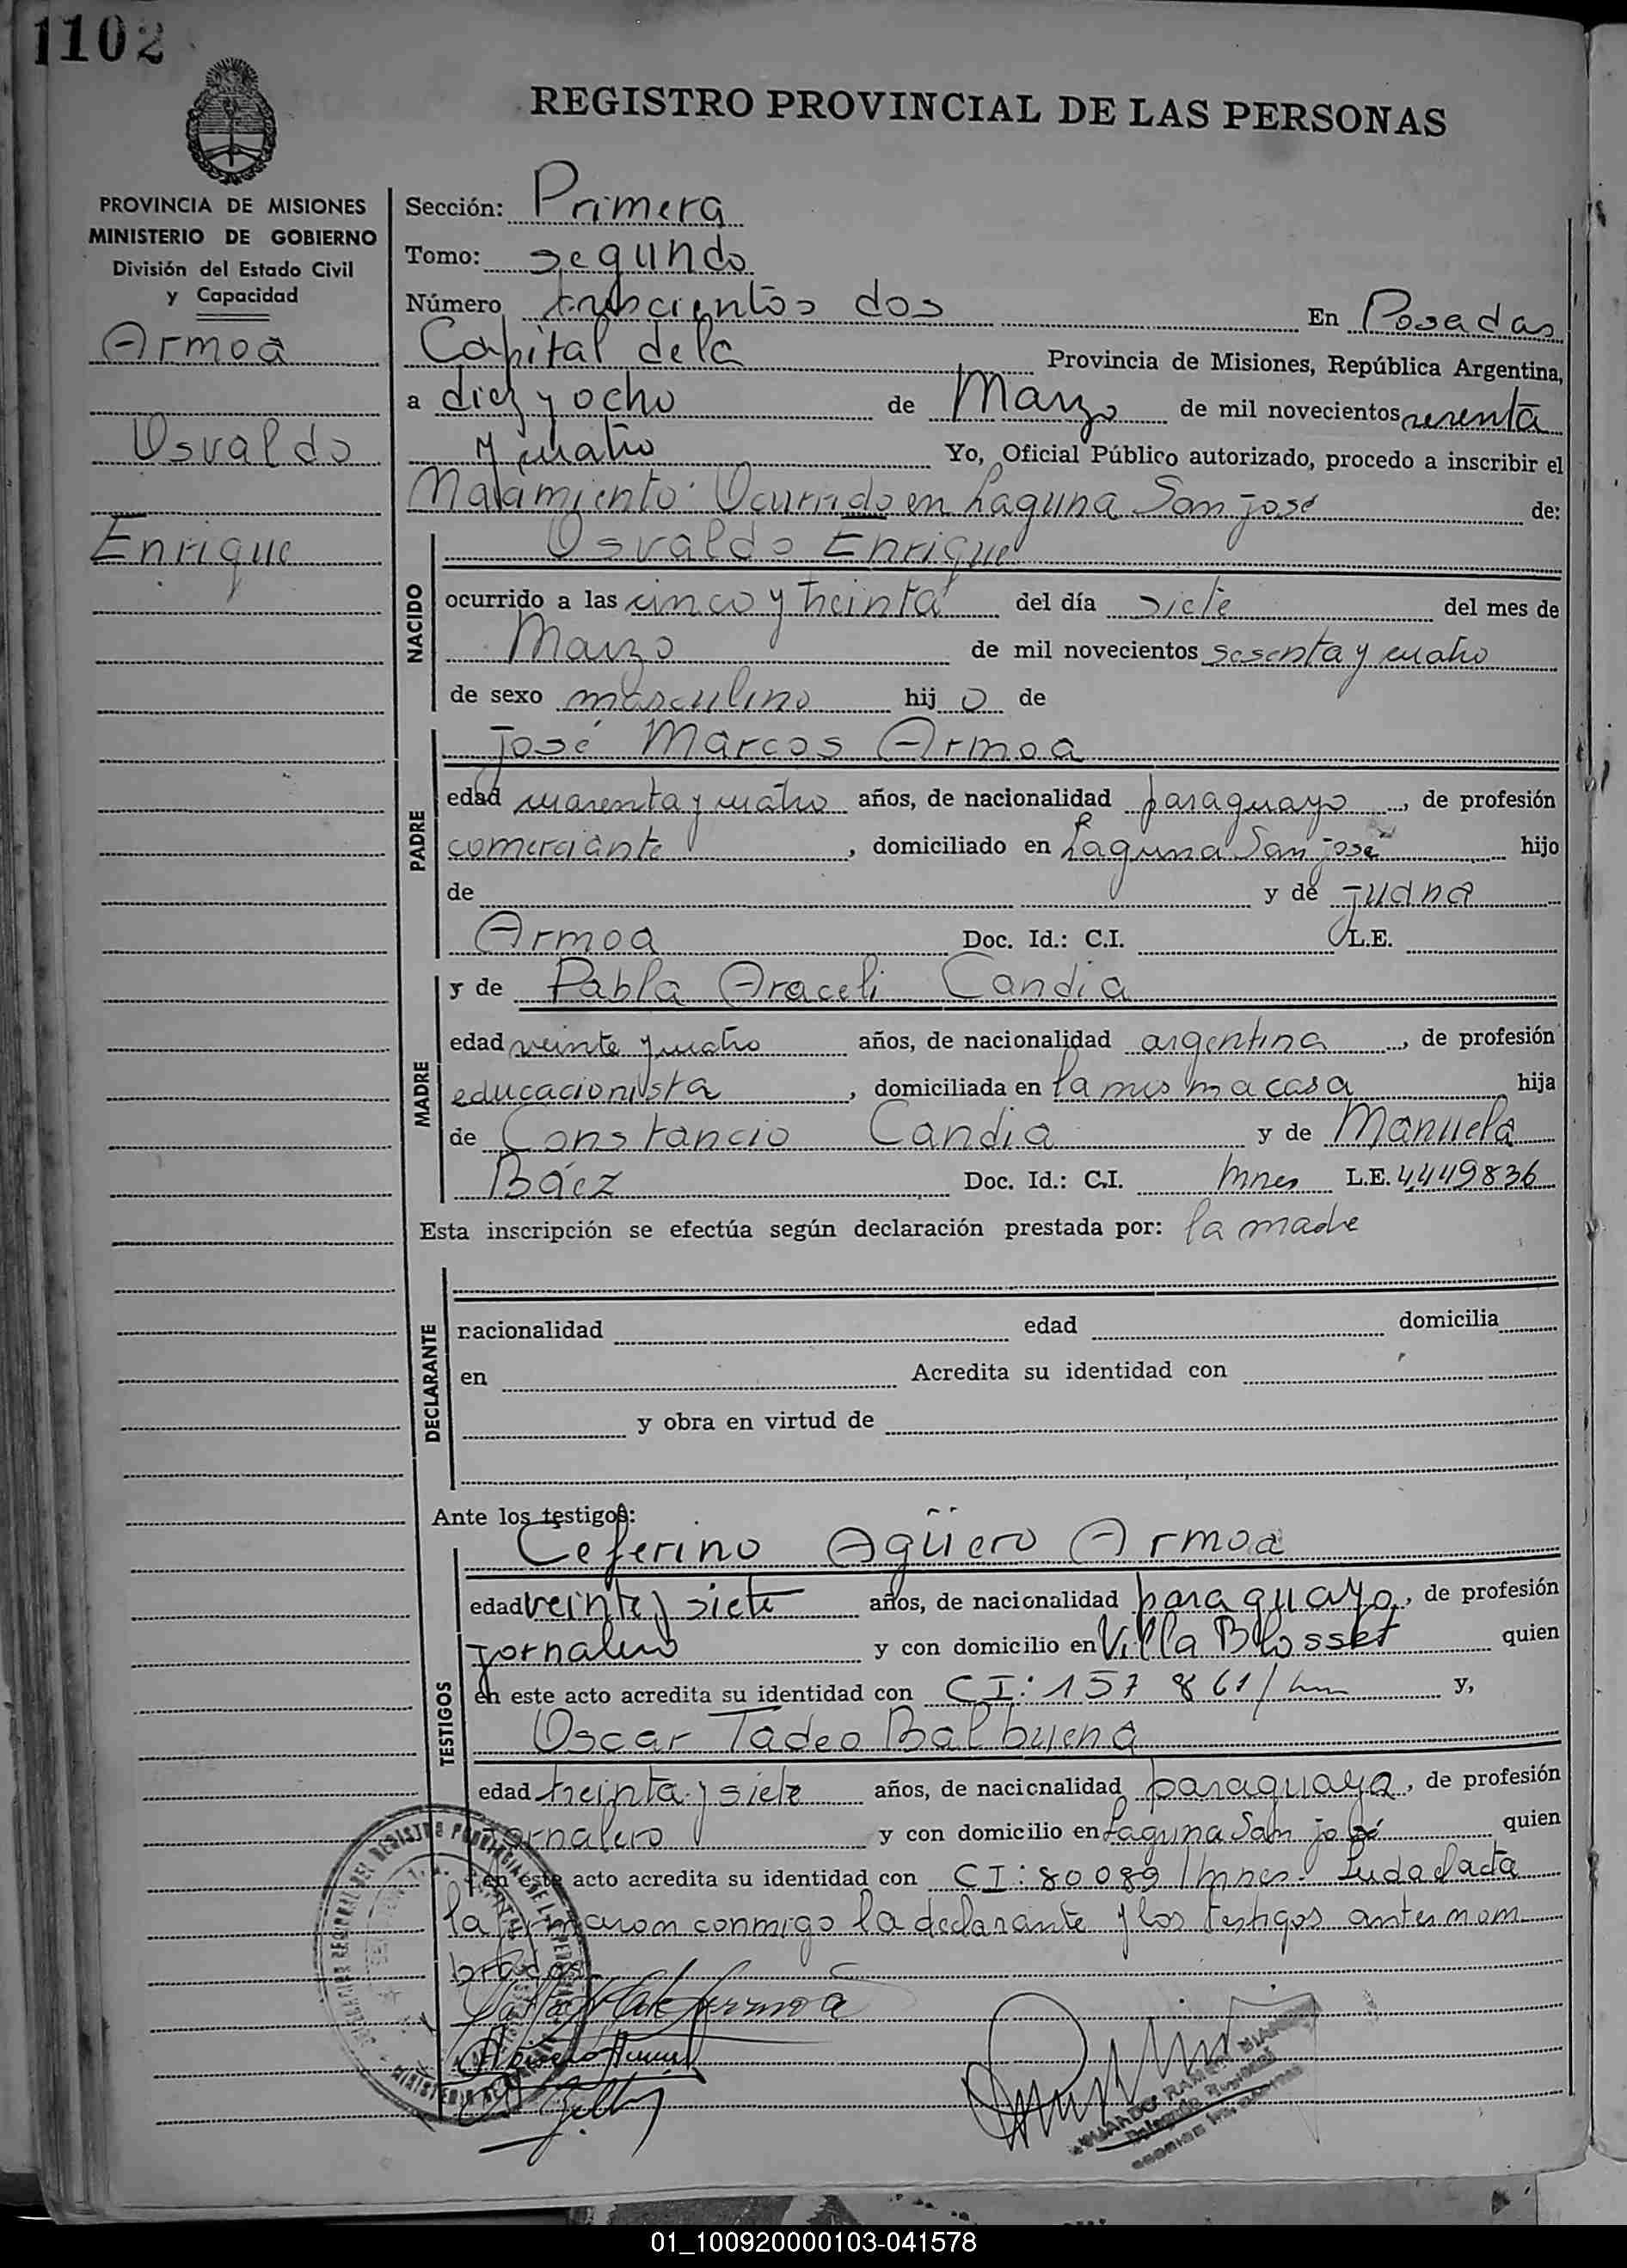 1102
REGISTRO PROVINCIAL DE LAS PERSONAS
PROVINCIA DE MISIONES
MINISTERIO DE GOBIERNO
División del Estado Civil
y Capacidad
Armoa
Osvaldo
Enrique
Sección: Primera
Tomo: segundo
Número trescientos dos En Posadas
Capital de la Provincia de Misiones, República Argentina,
a diez y ocho de Marzo de mil novecientos sesenta
y cuatro Yo, Oficial Público autorizado, procedo a inscribir el
Nacimiento: Ocurrido en Laguna San José de:
NACIDO
Osvaldo Enrique
ocurrido a las cinco y treinta del día siete del mes de
Marzo de mil novecientos sesenta y cuatro
de sexo masculino hij o de
PADRE
José Marcos Armoa
edad cuarenta y cuatro años, de nacionalidad paraguayo, de profesión
comerciante, domiciliado en Laguna San José hijo
de y de Juana
Armoa Doc. Id.: C.I. L.E.
MADRE
y de Pabla Araceli Candia
edad veinte y cuatro años, de nacionalidad argentina, de profesión
educacionista, domiciliada en la misma casa hija
de Constancio Candia y de Manuela
Báez Doc. Id.: C.I. Mnes L.E. 4449836
Esta inscripción se efectúa según declaración prestada por: la madre
DECLARANTE
nacionalidad edad domicilia
en Acredita su identidad con
y obra en virtud de
Ante los testigos:
TESTIGOS
Ceferino Agüero Armoa
edad veinte y siete años, de nacionalidad paraguayo, de profesión
jornalero y con domicilio en Villa Blosset quien
en este acto acredita su identidad con CI: 157 861/ y,
Oscar Tadeo Balbuena
edad treinta y siete años, de nacionalidad paraguaya, de profesión
jornalero y con domicilio en Laguna San José quien
en este acto acredita su identidad con CI: 80089/Mnes. Leida el acta
la firmaron conmigo la declarante y los testigos antes nom
brados
01_100920000103-041578